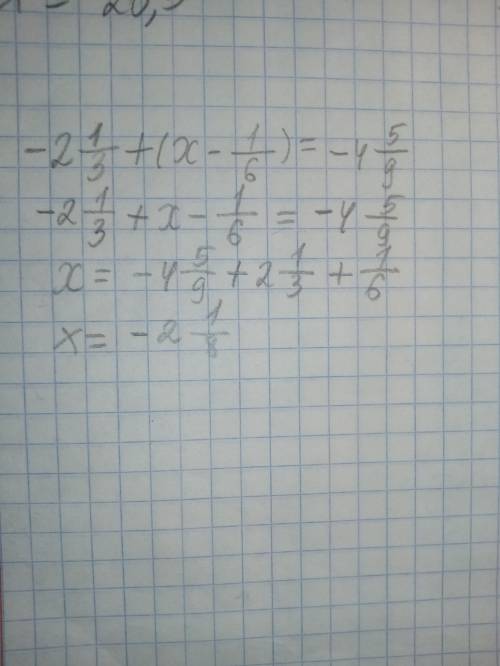 -2 1/3 + (x - 1/6) = -4 5/9
-2 1/3 + x - 1/6 = -4 5/9
x = -4 5/9 + 2 1/3 + 1/6
x = -2